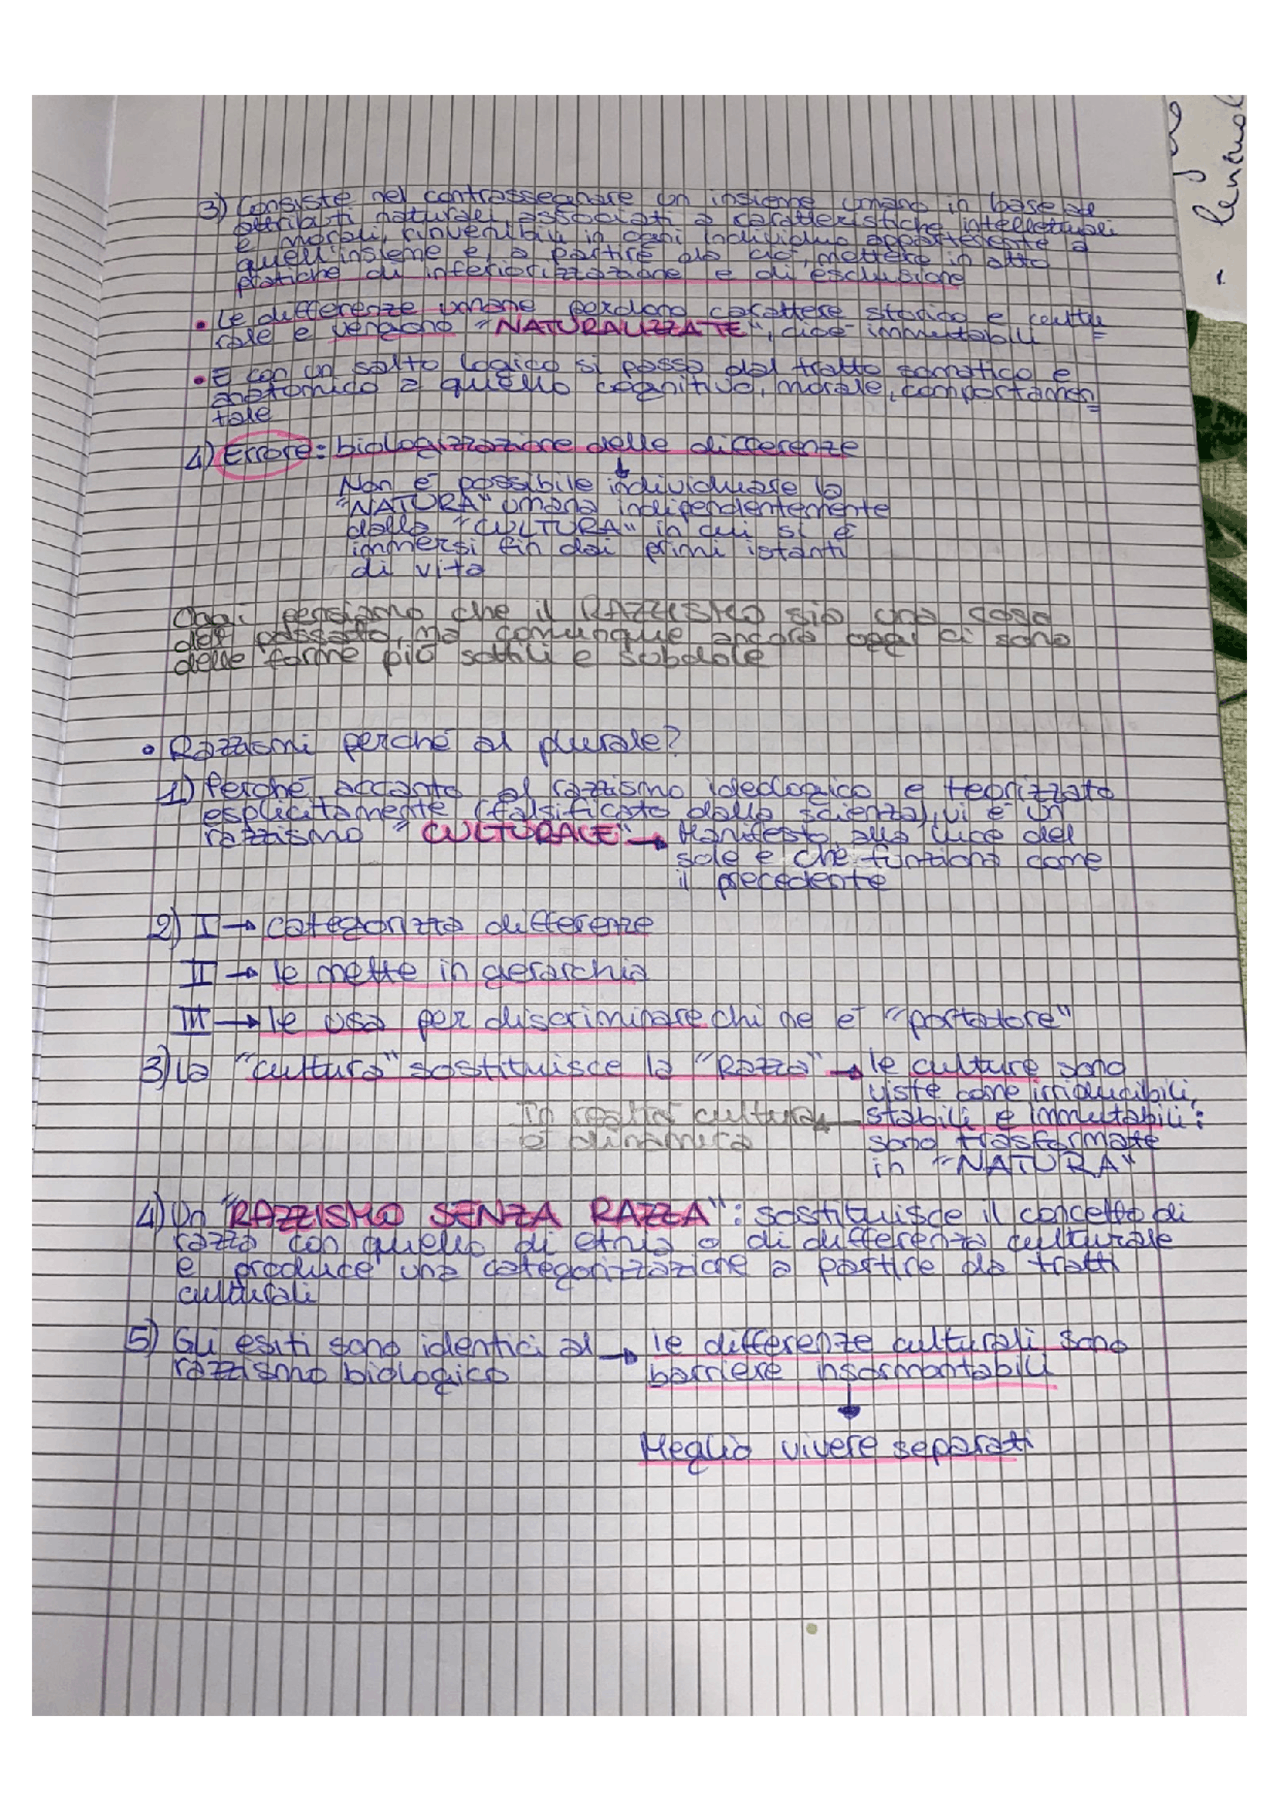 3) Consiste nel contrassegnare un insieme umano in base ad
attributi naturali, associati a caratteristiche intellettuali
e morali, rinvenibili in ogni individuo appartenente a
quell'insieme e, a partire da ciò, mettere in atto
pratiche di inferiorizzazione e di esclusione
• Le differenze umane perdono carattere storico e cultu
rale e vengono "NATURALIZZATE", cioè immutabili
• E con un salto logico si passa dal tratto somatico e
anatomico a quello cognitivo, morale, comportamen
tale
4) Errore: biologizzazione delle differenze
Non è possibile individuare la
"NATURA" umana indipendentemente
dalla "CULTURA" in cui si è
immersi fin dai primi istanti
di vita
Oggi pensiamo che il RAZZISMO sia una cosa
del passato, ma comunque ancora oggi ci sono
delle forme più sottili e subdole
• Razzismi perché al plurale?
1) Perché accanto al razzismo ideologico e teorizzato
esplicitamente (falsificato dalla scienza), vi è un
razzismo "CULTURALE" → Manifesto alla luce del
sole e che funziona come
il precedente
2) I → categorizza differenze
II → le mette in gerarchia
III → le usa per discriminare chi ne è "portatore"
3) La "cultura" sostituisce la "Razza" → le culture sono
viste come irriducibili,
In realtà cultura ← stabili e immutabili:
è dinamica sono trasformate
in "NATURA"
4) Un "RAZZISMO SENZA RAZZA": sostituisce il concetto di
razza con quello di etnia o di differenza culturale
e produce una categorizzazione a partire da tratti
culturali
5) Gli esiti sono identici al → le differenze culturali sono
razzismo biologico barriere insormontabili
Meglio vivere separati